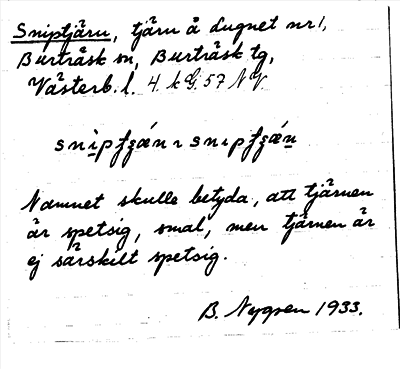 Sniptjärn, tjärn å Lugnet nr 1,
Burträsk sn, Burträsk tg,
Västerb. l. 4 k G. 57 NV
Namnet skulle betyda, att tjärnen
är spetsig, smal, men tjärnen är
ej särskilt spetsig.
B. Nygren 1933.